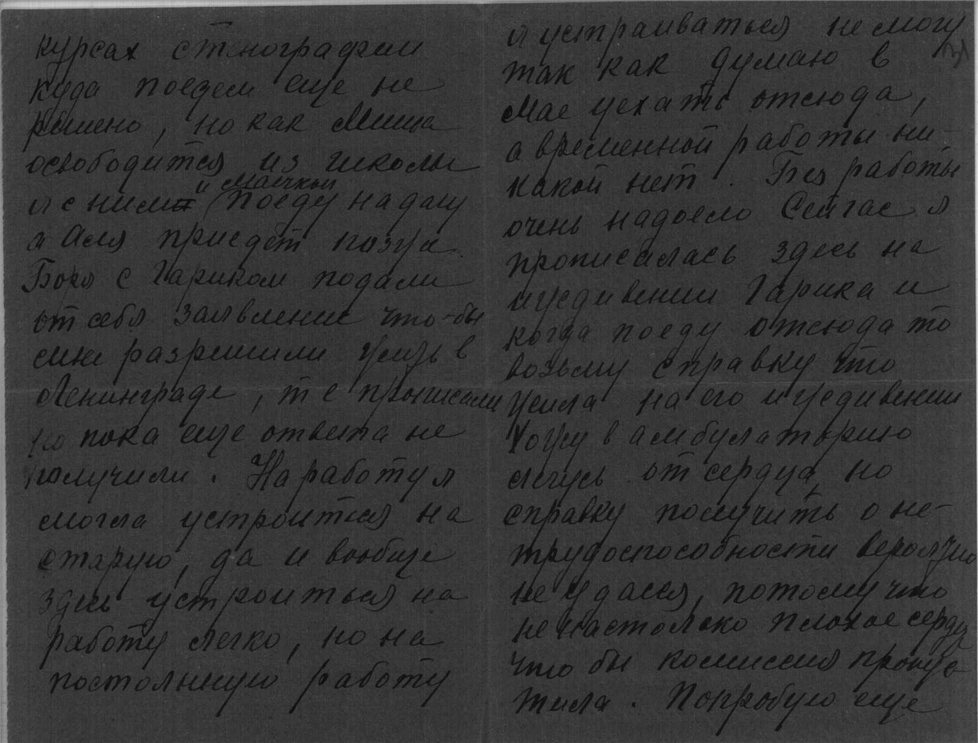 курсах стенографии
куда поедем еще не
решено, но как Миша
освободится из школы
я с ним и Маечкой поеду на дачу
а Аля приедет позже.
Боря с Гариком подали
от себя заявление что-бы
мне разрешили жить в
Ленинграде, т е прописали
но пока еще ответа не
получили. На работу я
могла устроится на
старую, да и вообще
здесь устроиться на
работу легко, но на
постоянную работу
я устраиваться не могу
так как думаю в
мае уехать отсюда,
а временной работы ни-
какой нет. Без работы
очень надоело Сейчас я
прописалась здесь на
иждивении Гарика и
когда поеду отсюда то
возьму справку что
жила на его иждивении
Хожу в амбулаторию
лечусь от сердца, но
справку получить о не-
трудоспособности вероятно
не удася, потому что
не настолько плохое сердце
что бы комиссия пропус
тила. Попробую еще